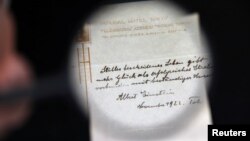 IMPERIAL HOTEL, TOKYO
Stilles bescheidenes Leben gibt
mehr Glück als erfolgreiches Streben
verbunden mit beständiger Unruhe
Albert Einstein
November 1922. Tok
REUTERS